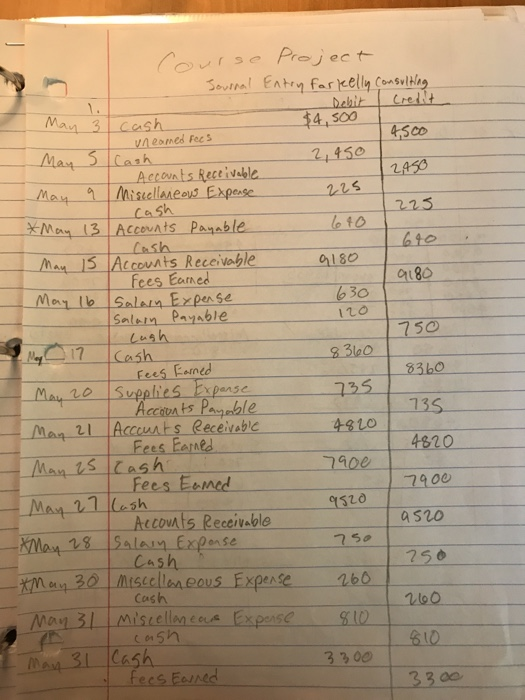 Course Project
Journal Entry For Kelly Consulting
1. Debit Credit
May 3 Cash $4,500
Unearned Fees 4,500
May 5 Cash 2,450
Accounts Receivable 2,450
May 9 Miscellaneous Expense 225
Cash 225
*May 13 Accounts Payable 640
Cash 640
May 15 Accounts Receivable 9180
Fees Earned 9180
May 16 Salary Expense 630
Salary Payable 120
Cash 750
May 17 Cash 8360
Fees Earned 8360
May 20 Supplies Expense 735
Accounts Payable 735
May 21 Accounts Receivable 4820
Fees Earned 4820
May 25 Cash 7900
Fees Earned 7900
May 27 Cash 9520
Accounts Receivable 9520
*May 28 Salary Expense 750
Cash 750
*May 30 Miscellaneous Expense 260
Cash 260
May 31 Miscellaneous Expense 810
Cash 810
May 31 Cash 3300
Fees Earned 3300